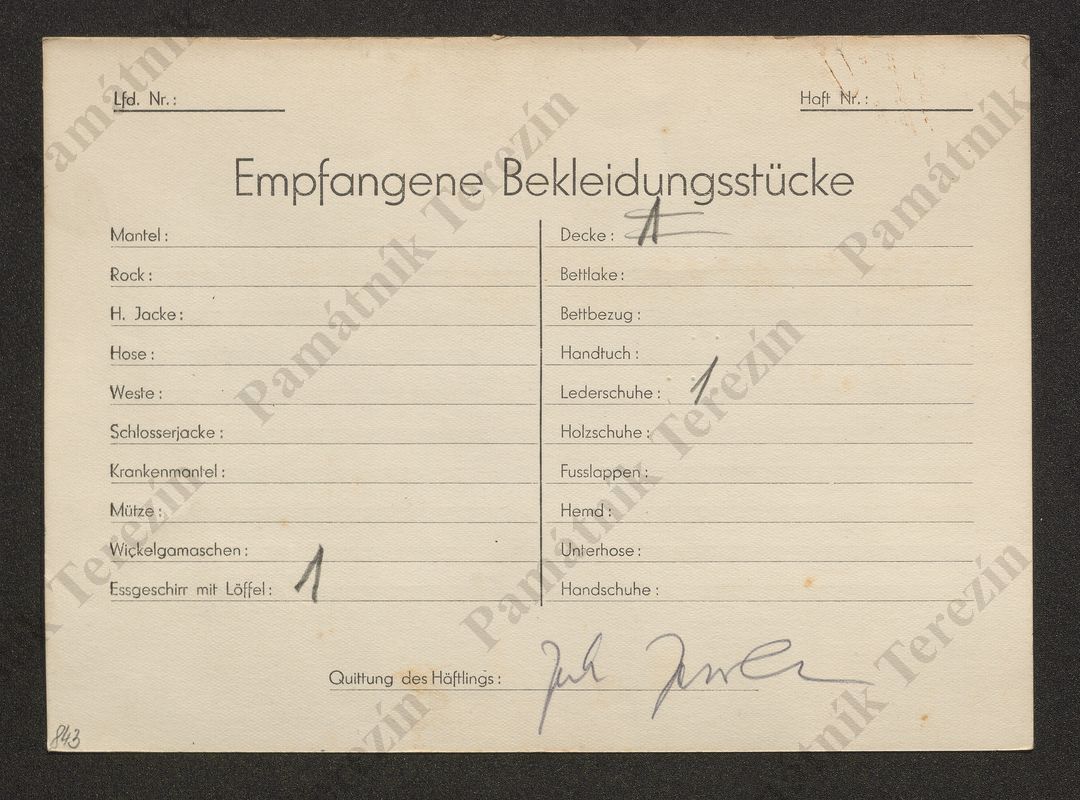 Lfd. Nr.:
Haft Nr.:
Empfangene Bekleidungsstücke
Mantel:
Rock:
H. Jacke:
Hose:
Weste:
Schlosserjacke:
Krankenmantel:
Mütze:
Wickelgamaschen:
Essgeschirr mit Löffel: 1
Decke: 1
Bettlake:
Bettbezug:
Handtuch:
Lederschuhe: 1
Holzschuhe:
Fusslappen:
Hemd:
Unterhose:
Handschuhe:
Quittung des Häftlings:
843
Památník Terezín